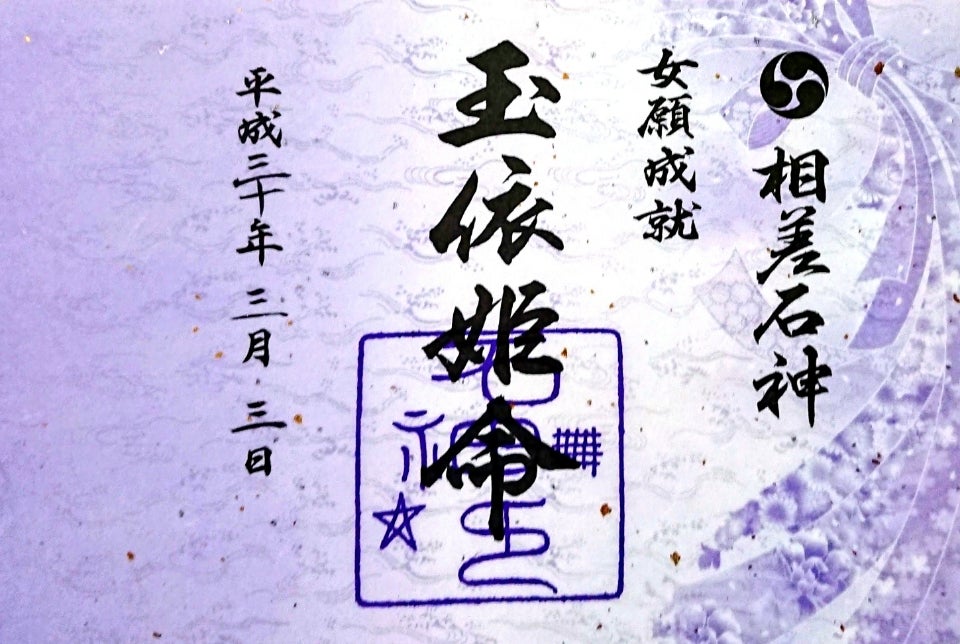 相差石神
女願成就
玉依姫命
平成三十年三月三日